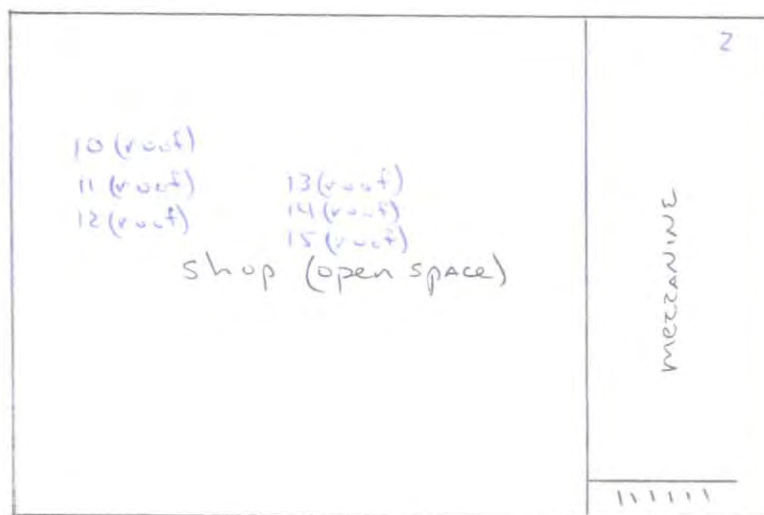 2
10 (roof)
11 (roof)
12 (roof)
13 (roof)
14 (roof)
15 (roof)
shop (open space)
mezzanine